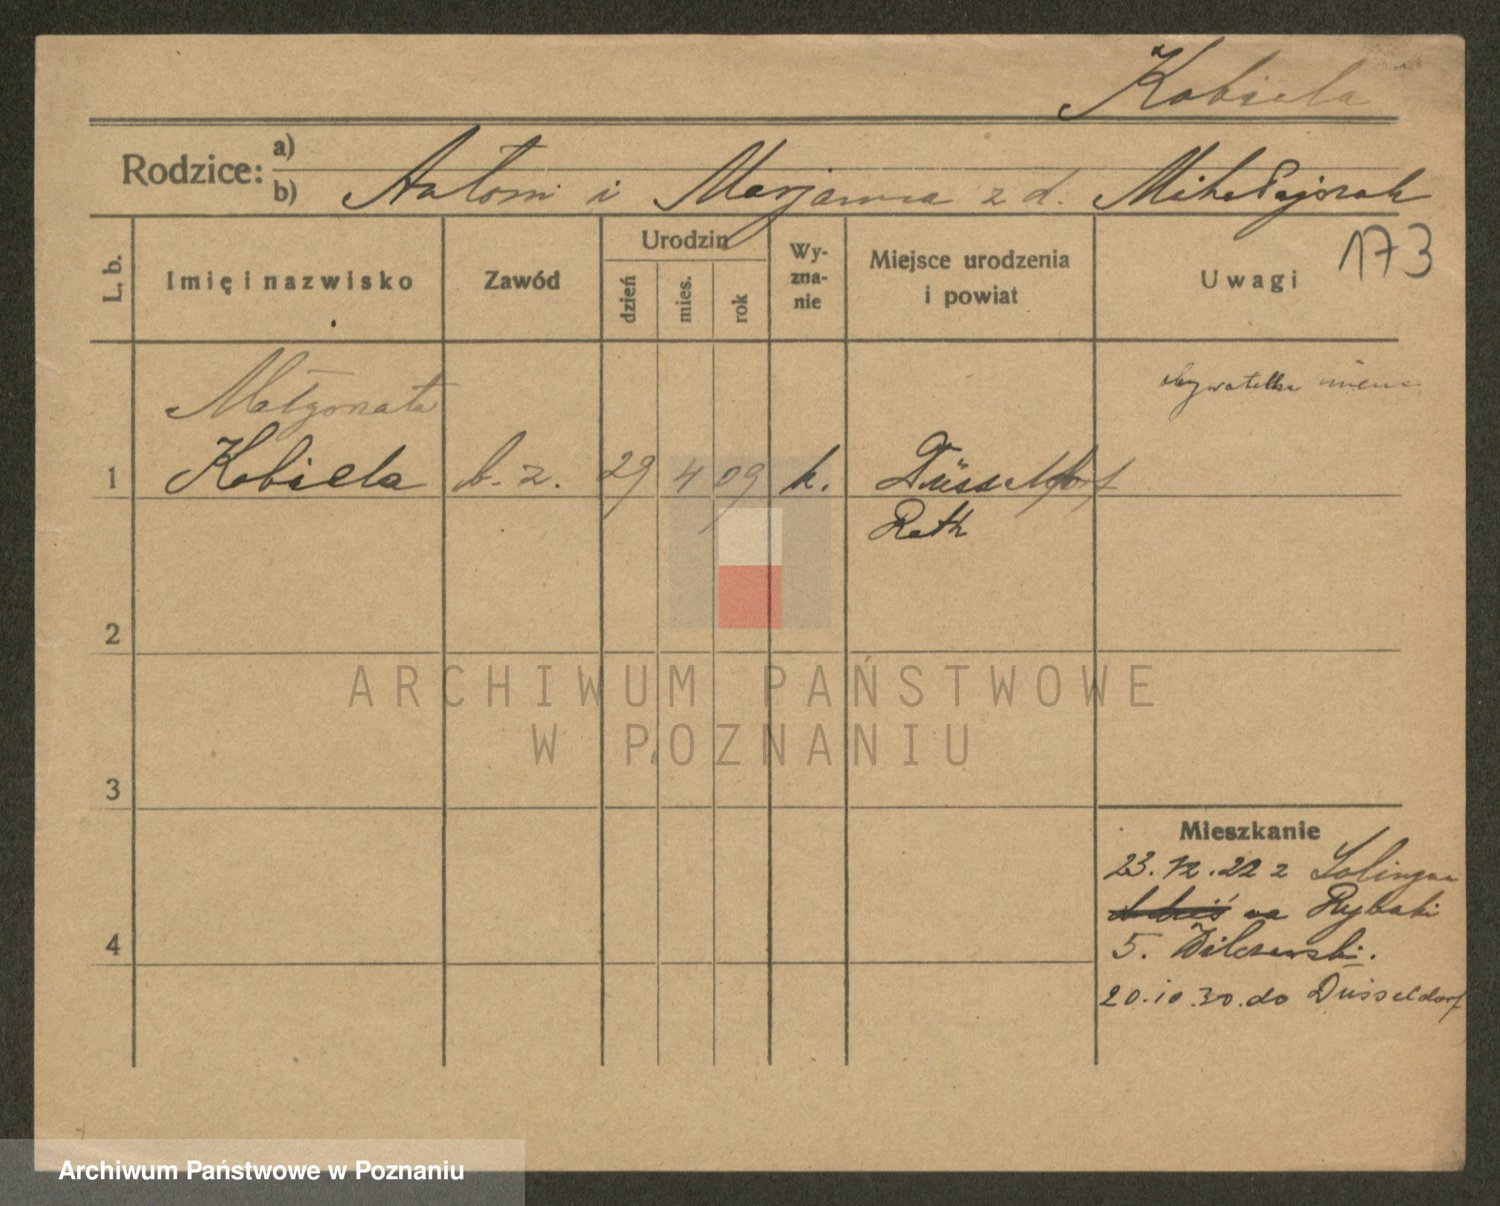 Kobiela
Rodzice: a)
b) Antoni i Marjanna z d. Mikołajczak
L. b.
Imię i nazwisko
Zawód
Urodzin
dzień
mies.
rok
Wy-
zna-
nie
Miejsce urodzenia
i powiat
Uwagi
173
Małgorzata
obywatelka niem.
1 Kobiela b. z. 29 4 09 k. Düsseldorf
Rath
2
3
4
Mieszkanie
23.12.22 z Solingen
na Rybaki
5. Wilczewski.
20.10.30. do Düsseldorf
ARCHIWUM PAŃSTWOWE
W POZNANIU
Archiwum Państwowe w Poznaniu